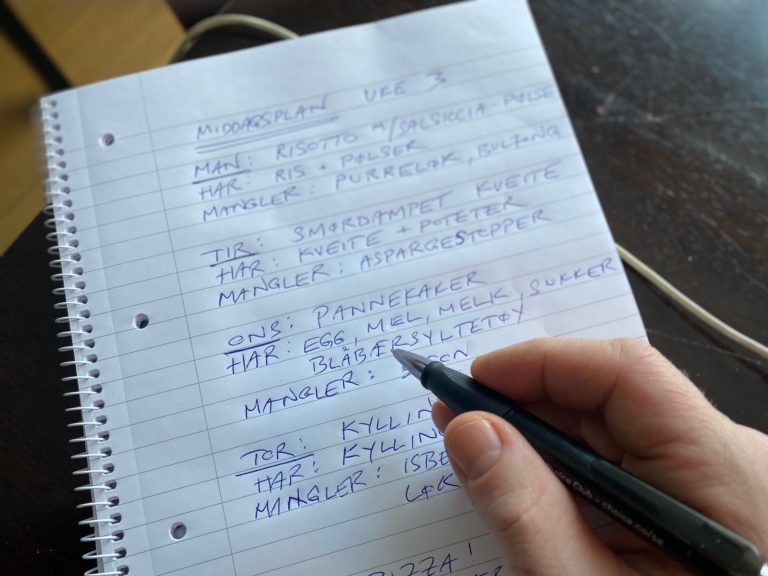 MIDDAGSPLAN UKE 3
MAN: RISOTTO M/SALSICCIA-PØLSE
HAR: RIS + PØLSER
MANGLER: PURRELØK, BULJONG
TIR: SMØRDAMPET KVEITE
HAR: KVEITE + POTETER
MANGLER: ASPARGESTOPPER
ONS: PANNEKAKER
HAR: EGG, MEL, MELK, SUKKER
BLÅBÆRSYLTETØY
MANGLER:
TOR:
HAR:
MANGLER:
PIZZA!
choice.no/se